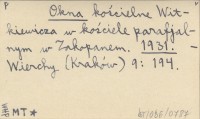 P P
Okna kościelne Wit-
kiewicza w kościele parafjal-
nym w Zakopanem. 1931.
Wierchy (Kraków) 9: 194.
MT*